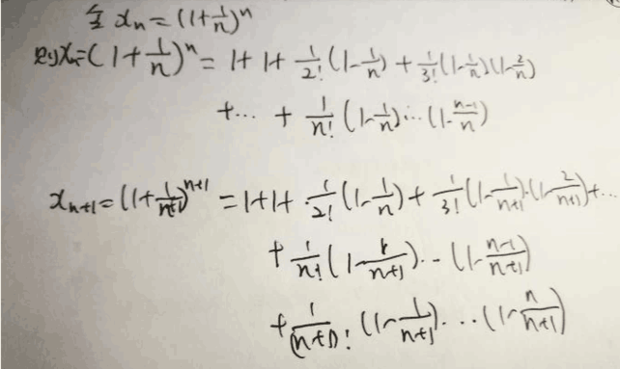 令 xₙ = (1+1/n)ⁿ
则xₙ = (1+1/n)ⁿ = 1+1+1/2!(1-1/n)+1/3!(1-1/n)(1-2/n)
+⋯+1/n!(1-1/n)⋯(1-(n-1)/n)
xₙ₊₁ = (1+1/(n+1))ⁿ⁺¹ = 1+1+1/2!(1-1/n)+1/3!(1-1/(n+1))·(1-2/(n+1))+⋯
+1/n!(1-1/(n+1))⋯(1-(n-1)/(n+1))
+1/(n+1)!(1-1/(n+1))⋯(1-n/(n+1))